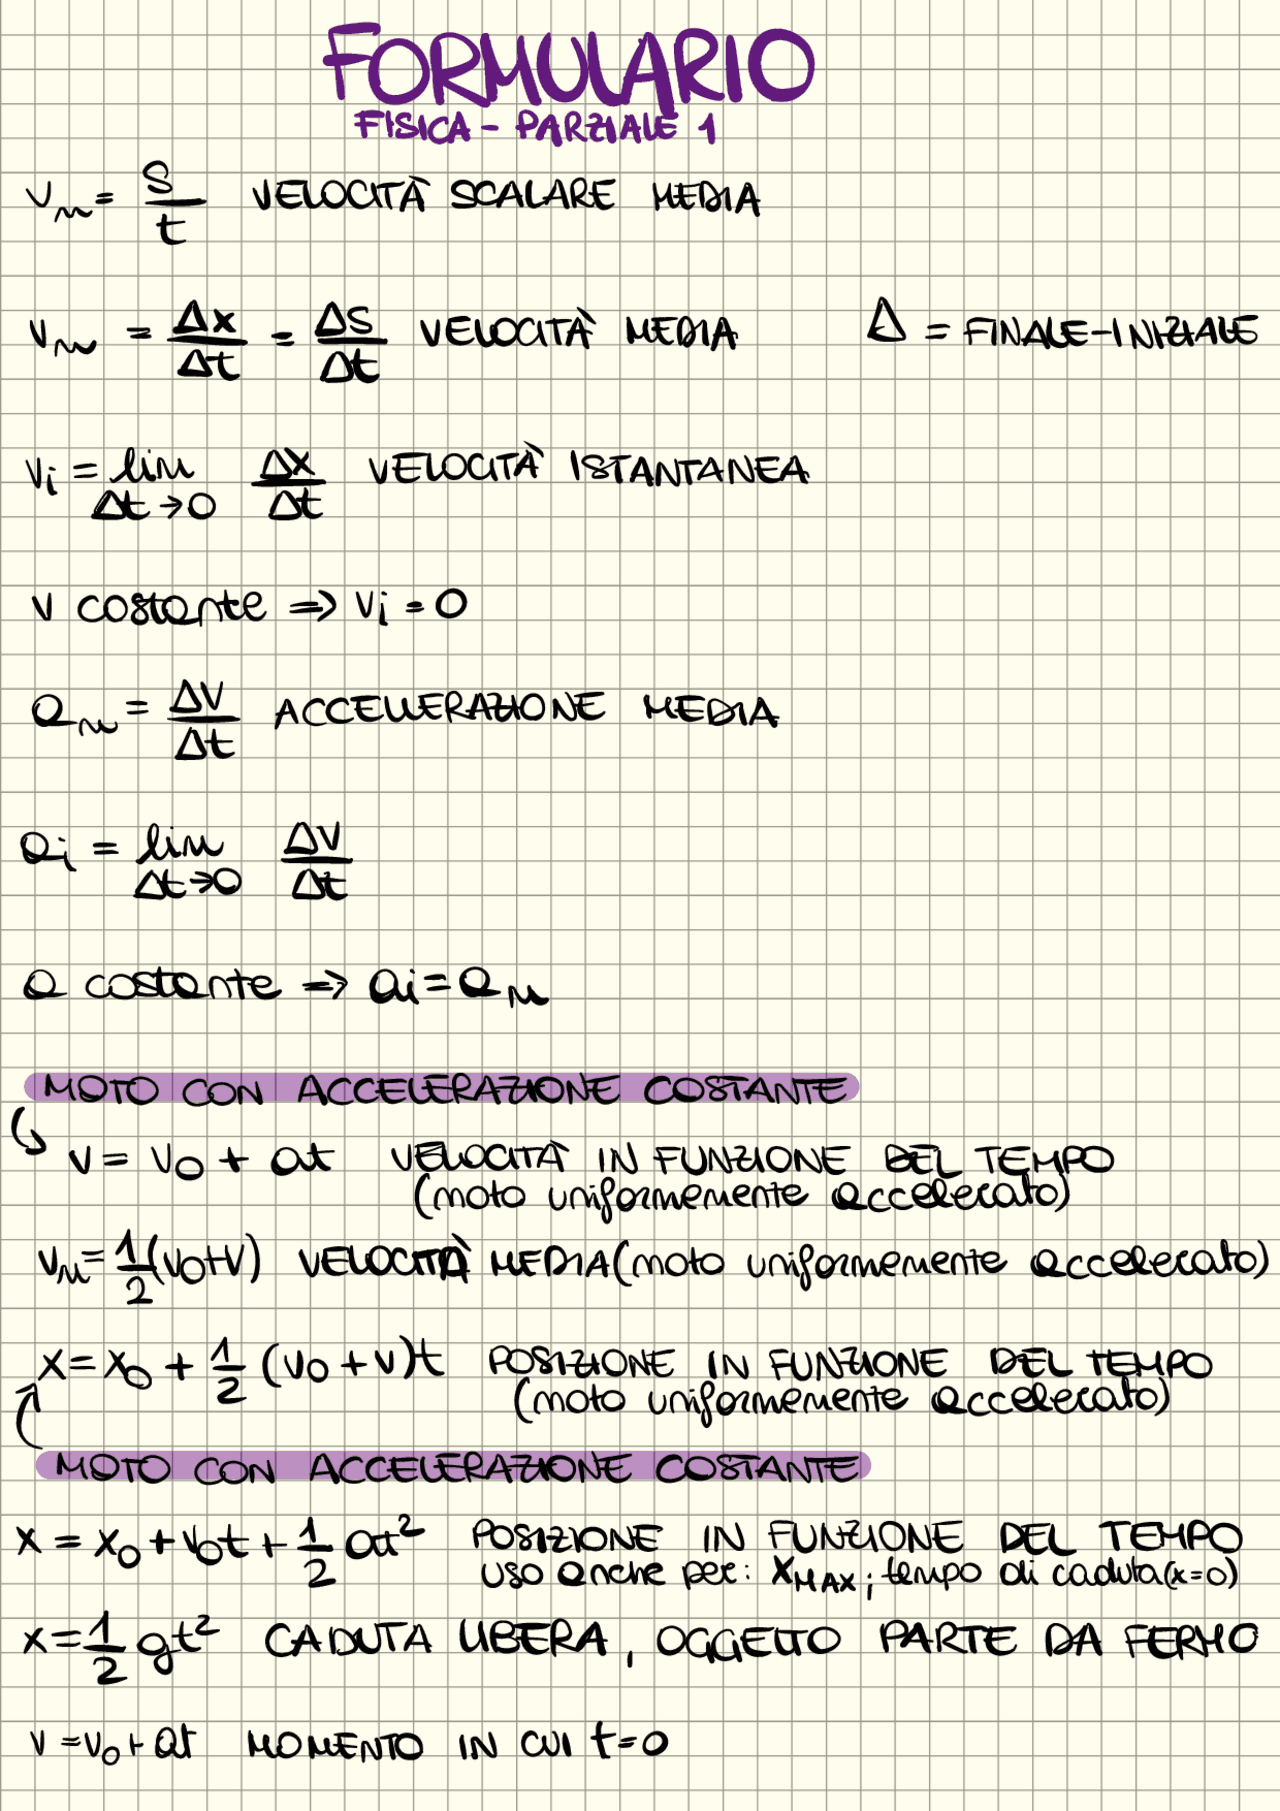 FORMULARIO
FISICA - PARZIALE 1
Vm = S/t VELOCITÀ SCALARE MEDIA
Vm = Δx/Δt = ΔS/Δt VELOCITÀ MEDIA Δ = FINALE-INIZIALE
Vi = lim Δt→0 Δx/Δt VELOCITÀ ISTANTANEA
V costante ⇒ Vi = 0
am = ΔV/Δt ACCELLERAZIONE MEDIA
ai = lim Δt→0 ΔV/Δt
a costante ⇒ ai = am
MOTO CON ACCELERAZIONE COSTANTE
V = V0 + at VELOCITÀ IN FUNZIONE DEL TEMPO
(moto uniformemente accelerato)
Vm = 1/2 (V0+V) VELOCITÀ MEDIA (moto uniformemente accelerato)
x = x0 + 1/2 (V0 + V)t POSIZIONE IN FUNZIONE DEL TEMPO
(moto uniformemente accelerato)
MOTO CON ACCELERAZIONE COSTANTE
x = x0 + V0t + 1/2 at² POSIZIONE IN FUNZIONE DEL TEMPO
uso anche per: XMAX; tempo di caduta (x=0)
x = 1/2 gt² CADUTA LIBERA, OGGETTO PARTE DA FERMO
V = V0 + at MOMENTO IN CUI t=0